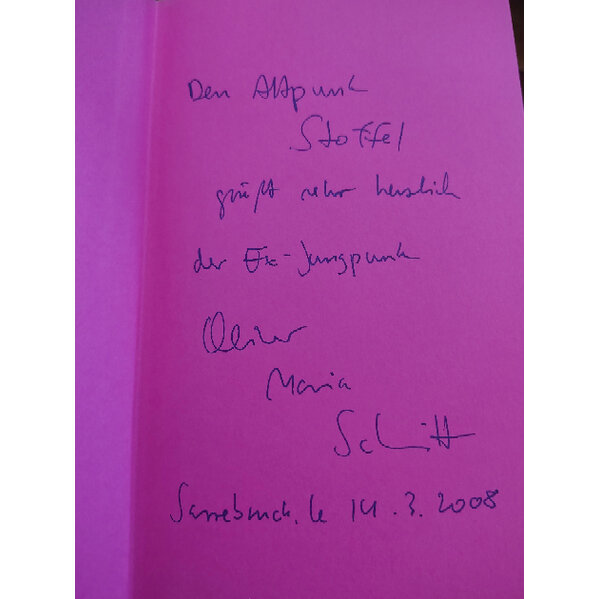 Den Altpunk
Stoffel
grüßt sehr herzlich
der Ex-Jungpunk
Oliver
Maria
Schmitt
Sarrebruck, le 14.3.2008